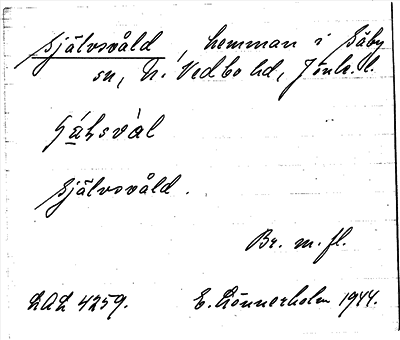 Självsvåld, hemman i Säby
sn, N. Vedbo hd, Jönk. l.
Självsvåld.
Br. m. fl.
LAL 4259. E. Rönnerholm 1944.